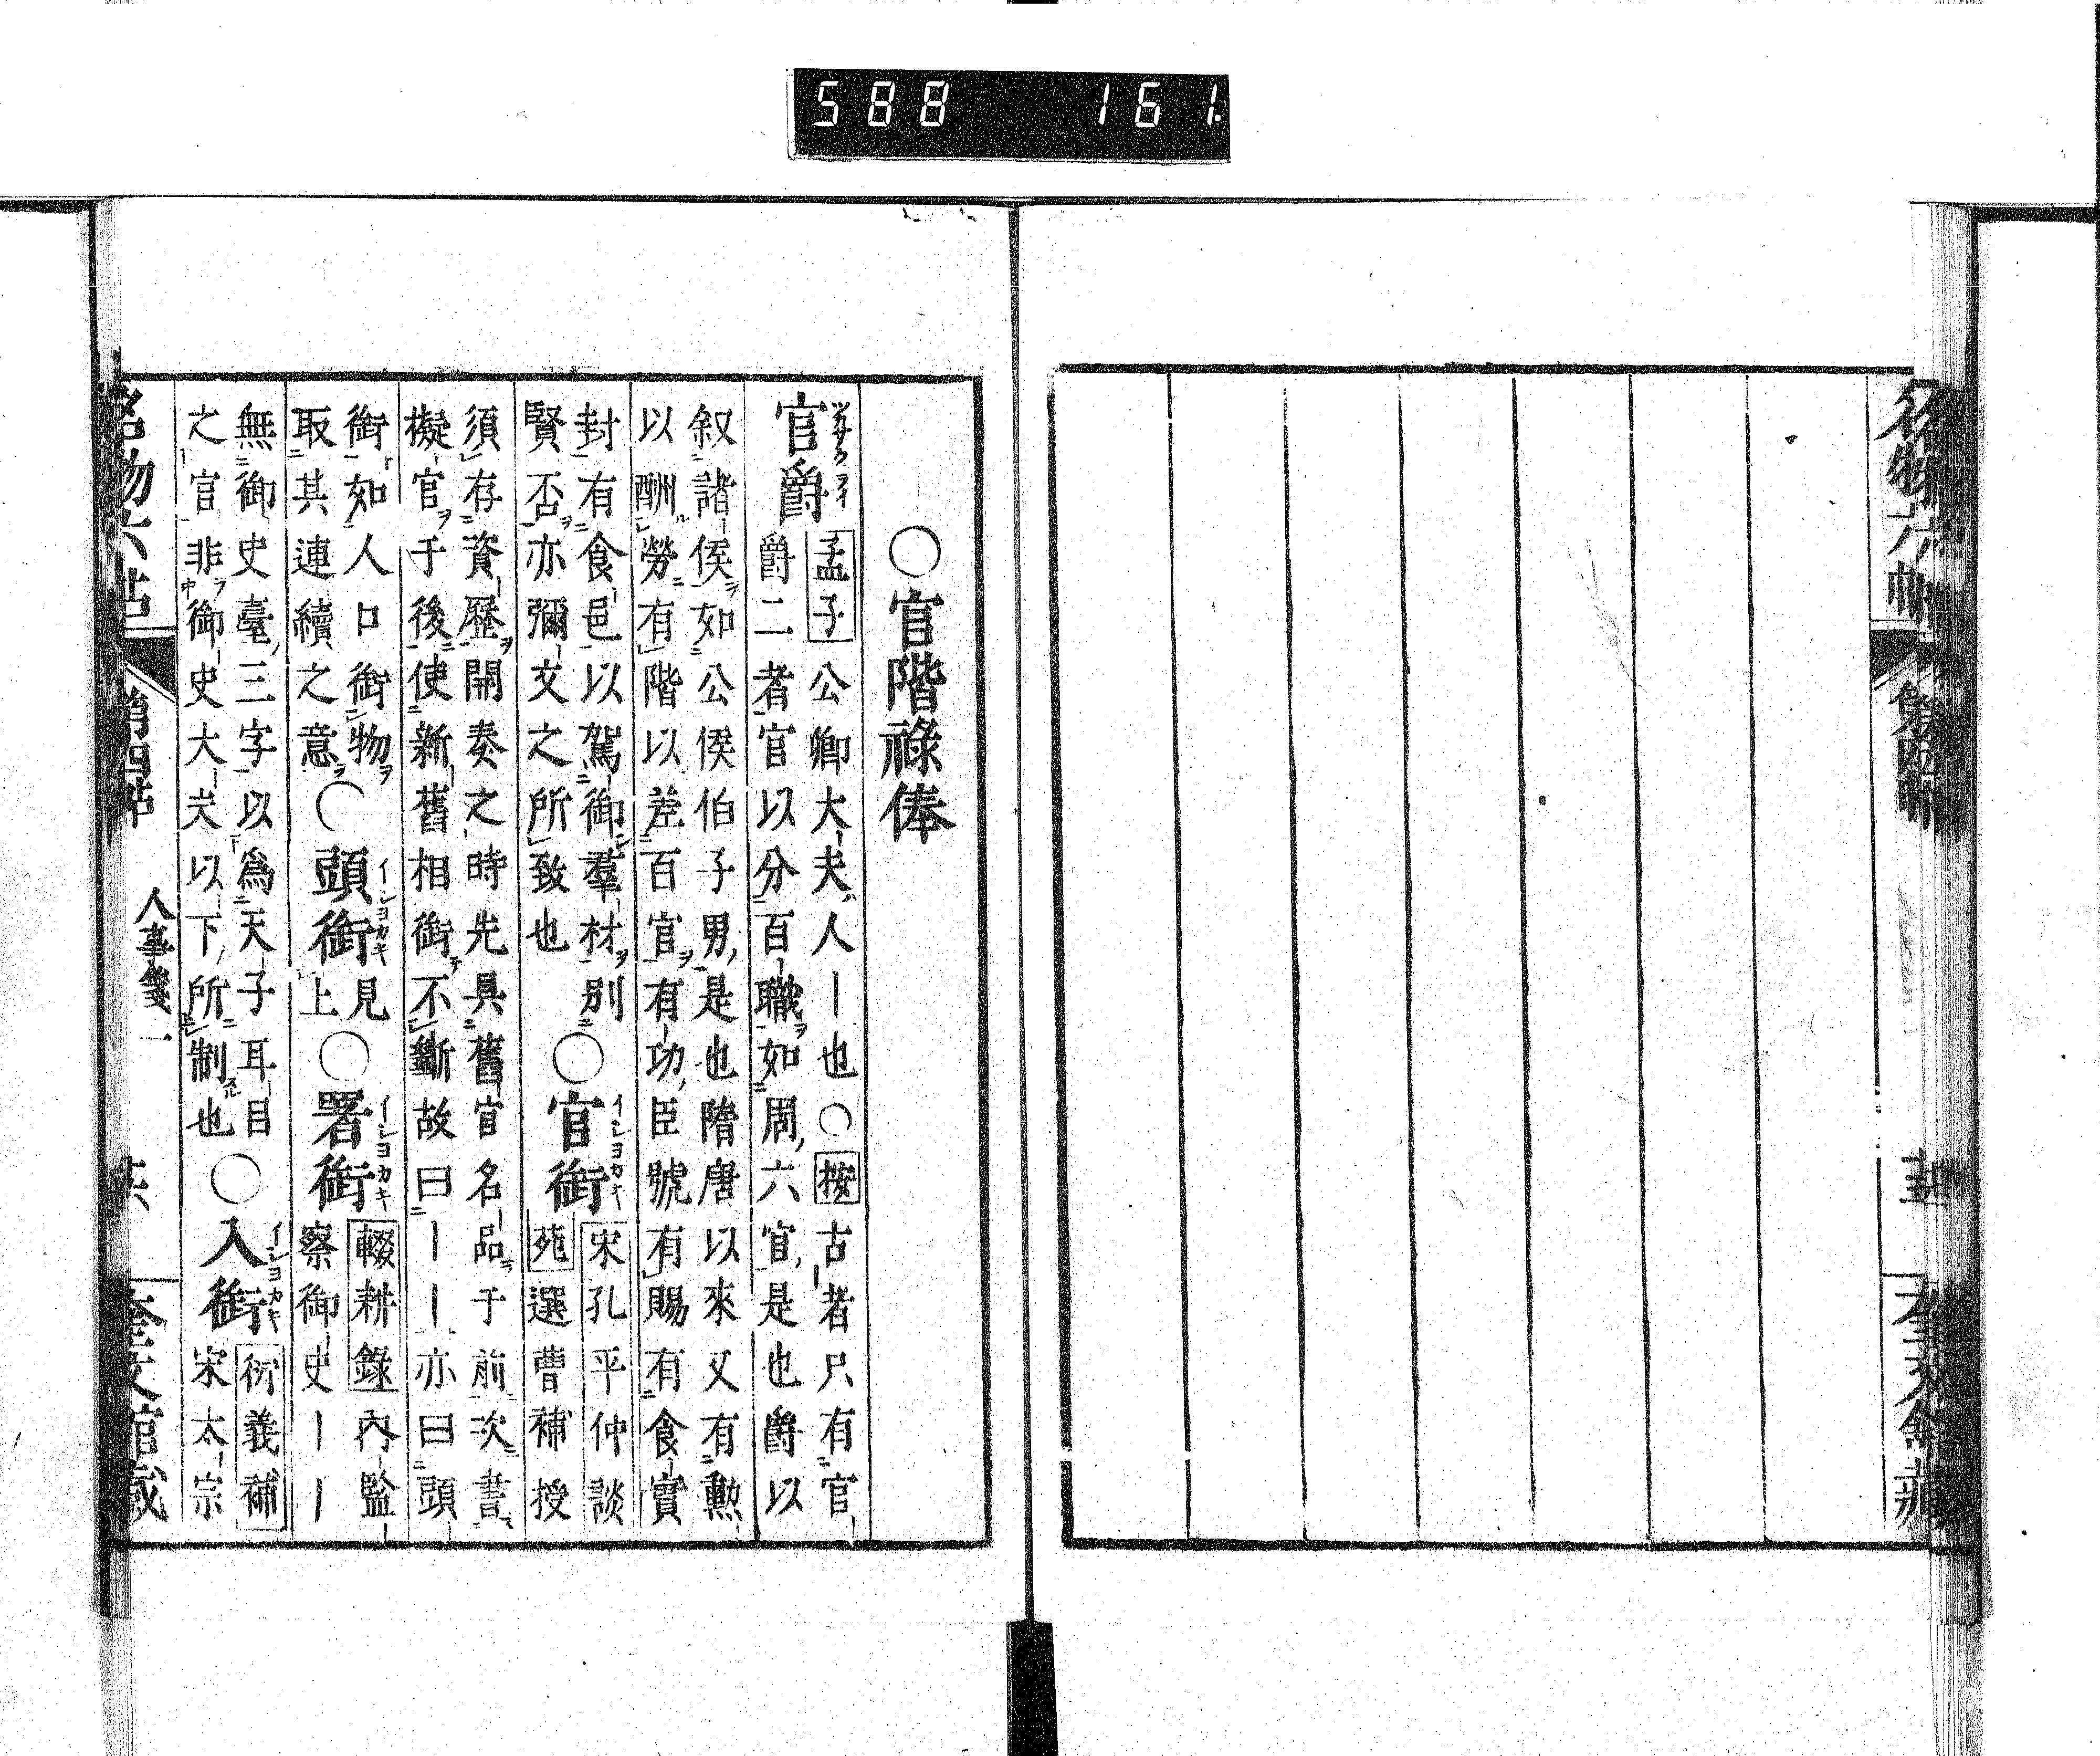 588 161
名物六帖 第四帖 奎文館藏
○官階祿俸
官爵 孟子公卿大夫人〡也○按古者只有官
爵二者官以分百職如周六官是也爵以
叙諸侯如公侯伯子男是也隋唐以來又有勲
以酬勞有階以差百官有功臣號有賜有食實
封有食邑以駕御羣材別
賢否亦彌文之所致也
○官銜 宋孔平仲談
苑選曹補授
須存資歷開奏之時先具舊官名品于前次書
擬官于後使新舊相銜不斷故曰〡〡亦曰頭
銜如人口銜物
取其連續之意
○頭銜 見
上
○署銜 輟耕錄內監
察御史〡〡
無御史臺三字以爲天子耳目
之官非御史大夫以下所制也
○入銜 衍義補
宋太宗
名物六帖 第四帖 人事箋一 奎文館藏